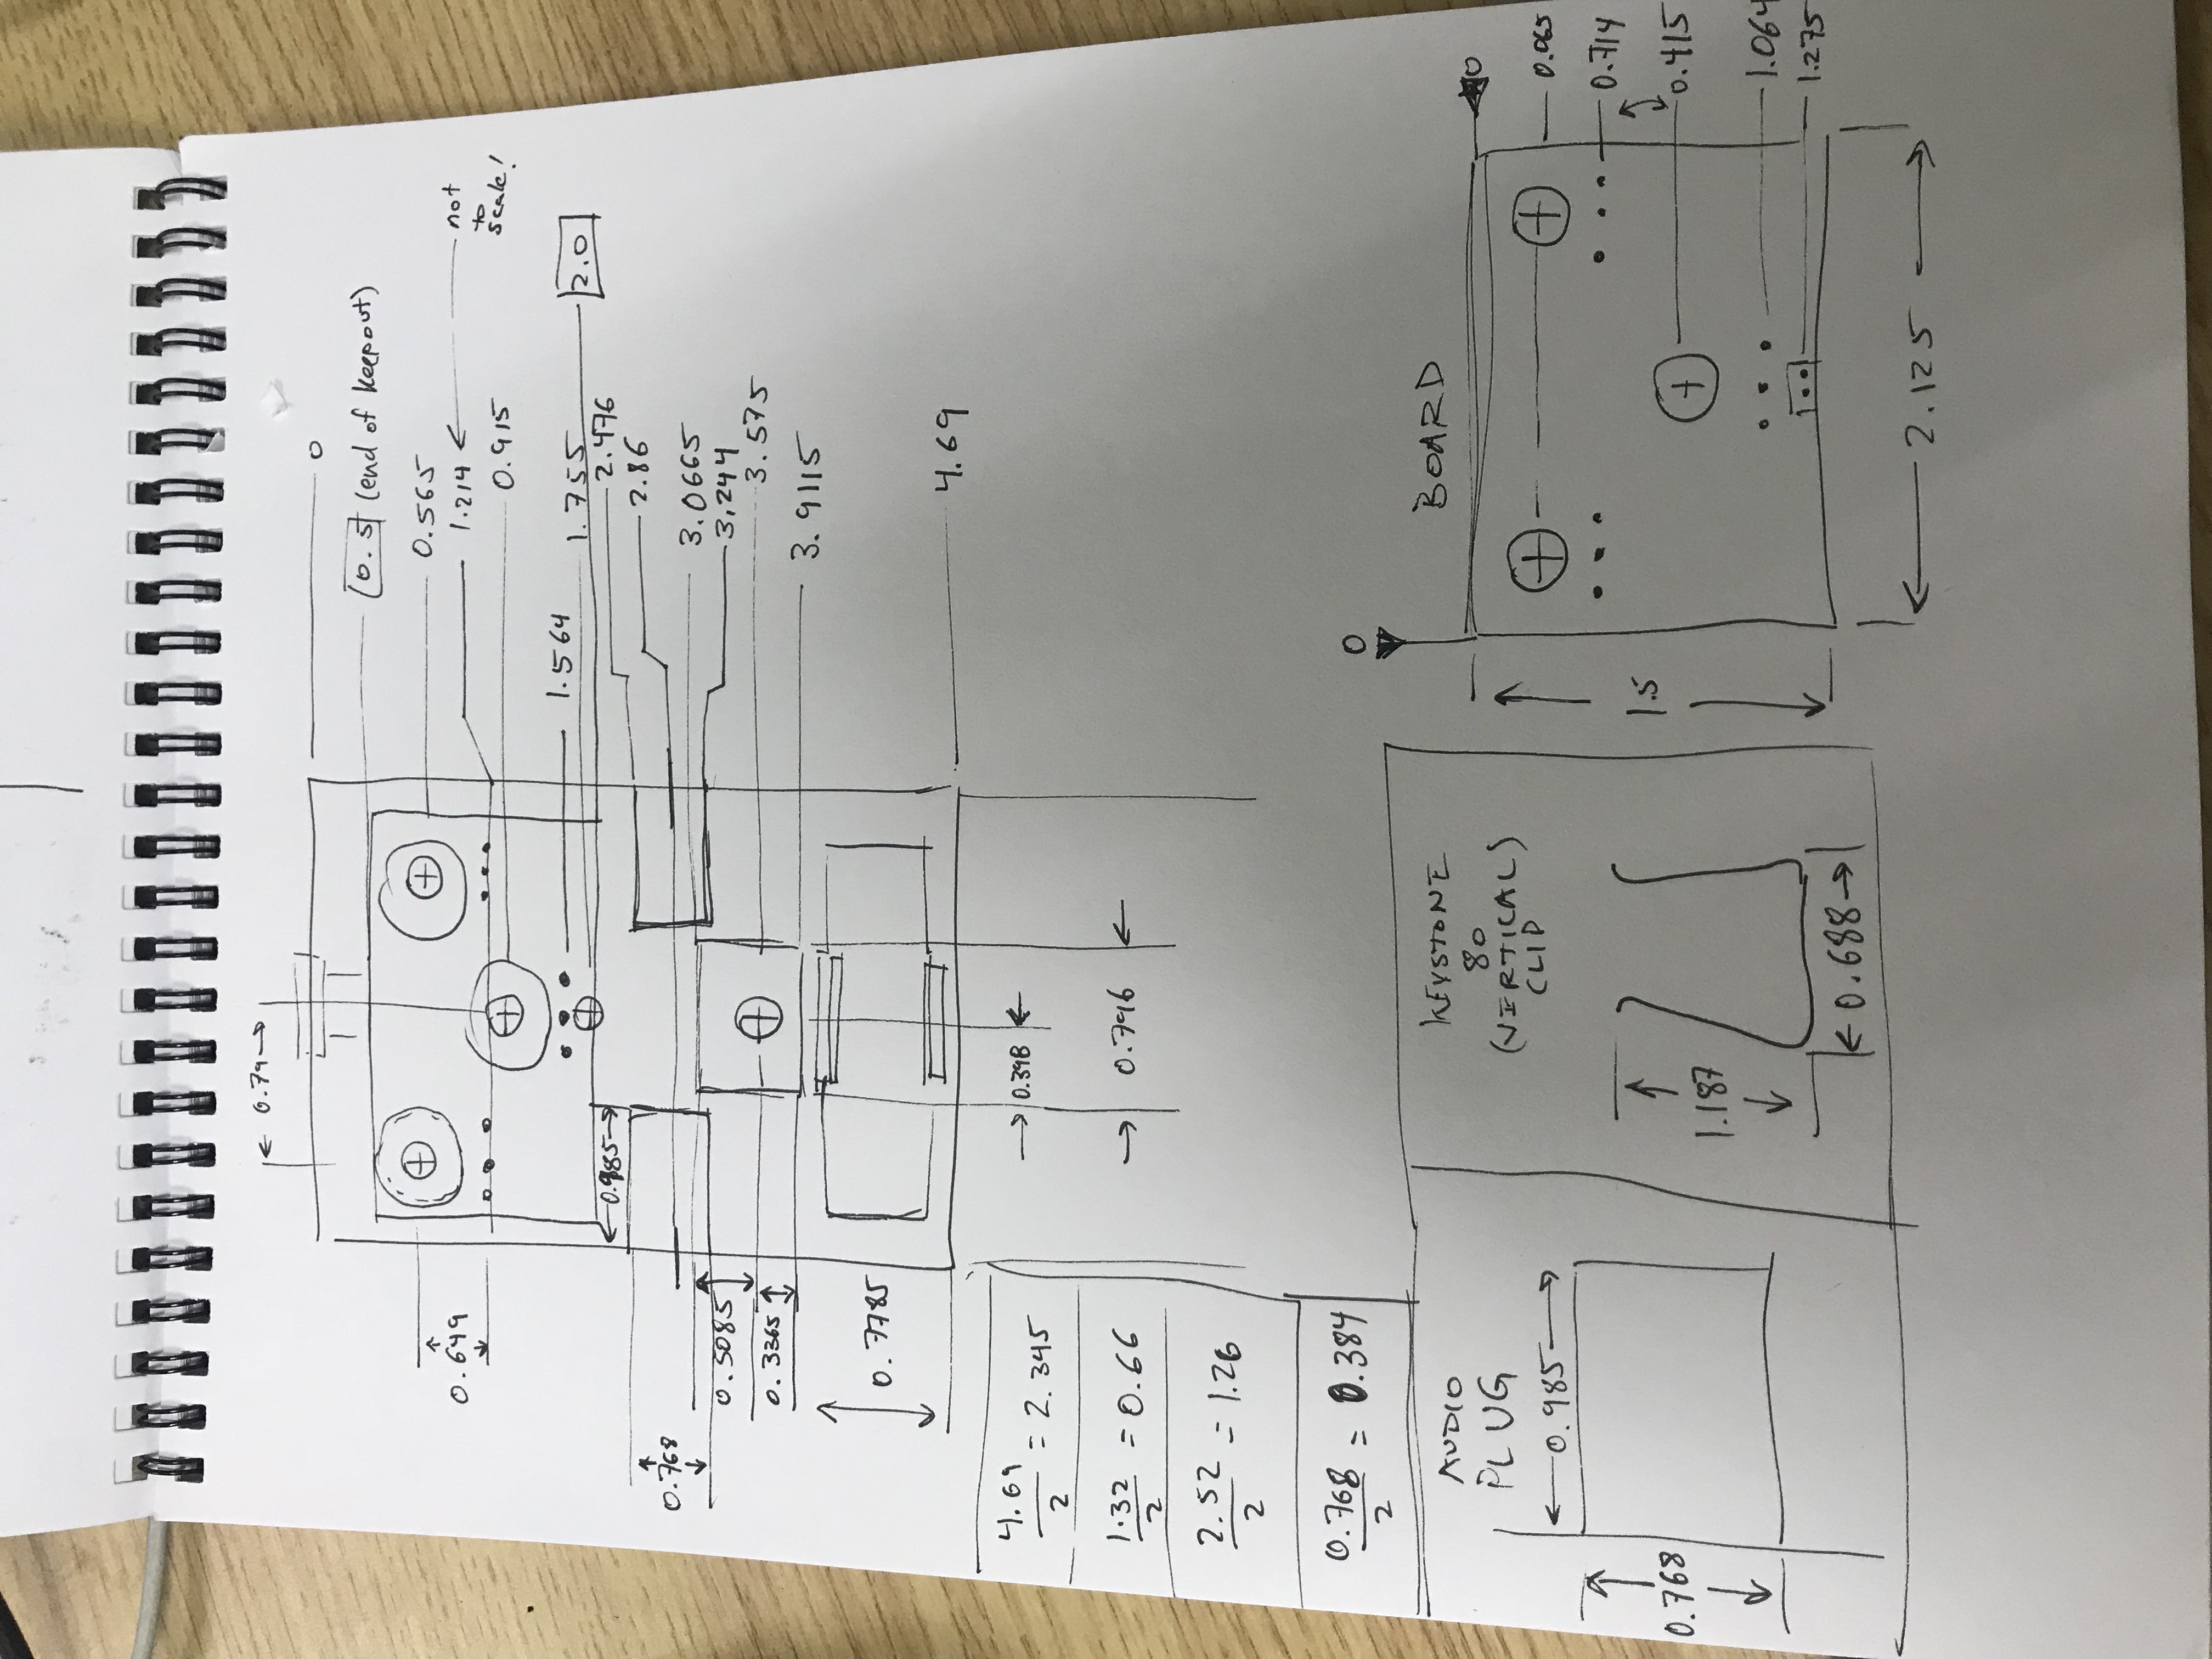 0.79
0
0.5 (end of keepout)
0.565
0.649
1.214
not
to
scale!
0.915
1.564
1.755
2.0
0.985
2.476
2.86
0.768
3.0665
0.5085
3.244
3.575
0.3365
3.9115
0.7785
4.69
0.398
0.796
4.69
2
= 2.345
1.32
2
= 0.66
2.52
2
= 1.26
0.768
2
= 0.384
AUDIO
PLUG
0.985
0.768
KEYSTONE
80
(VIRTICAL)
CLIP
1.187
0.688
0
BOARD
0
0.065
0.714
1.5
0.415
1.064
1.275
2.125